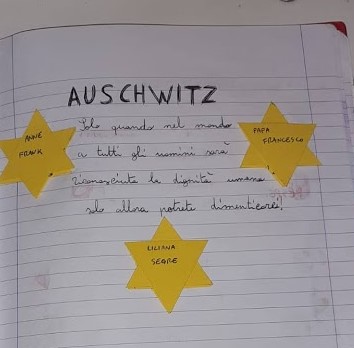 AUSCHWITZ
Solo quando nel mondo
a tutti gli uomini sarà
riconosciuta la dignità umana
solo allora potrete dimenticarci!
ANNE
FRANK
PAPA
FRANCESCO
LILIANA
SEGRE